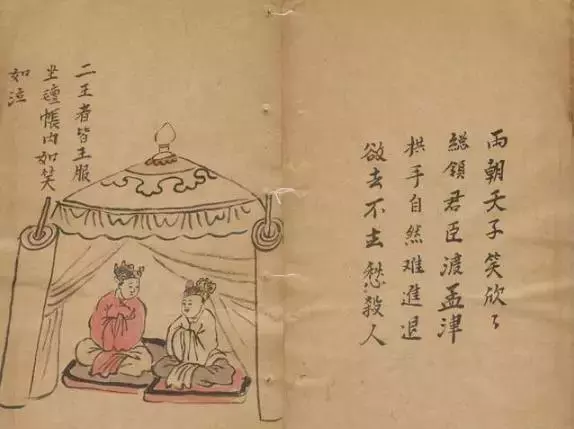 兩朝天子笑欣々
総領君臣渡孟津
拱手自然难進退
欲去不去愁殺人
二王者皆王服
坐氊帳内如笑
如泣